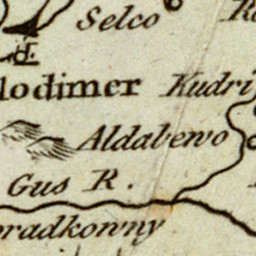 Selco
lodimer
Kudri
Aldabewo
Gus R.
oradkowny